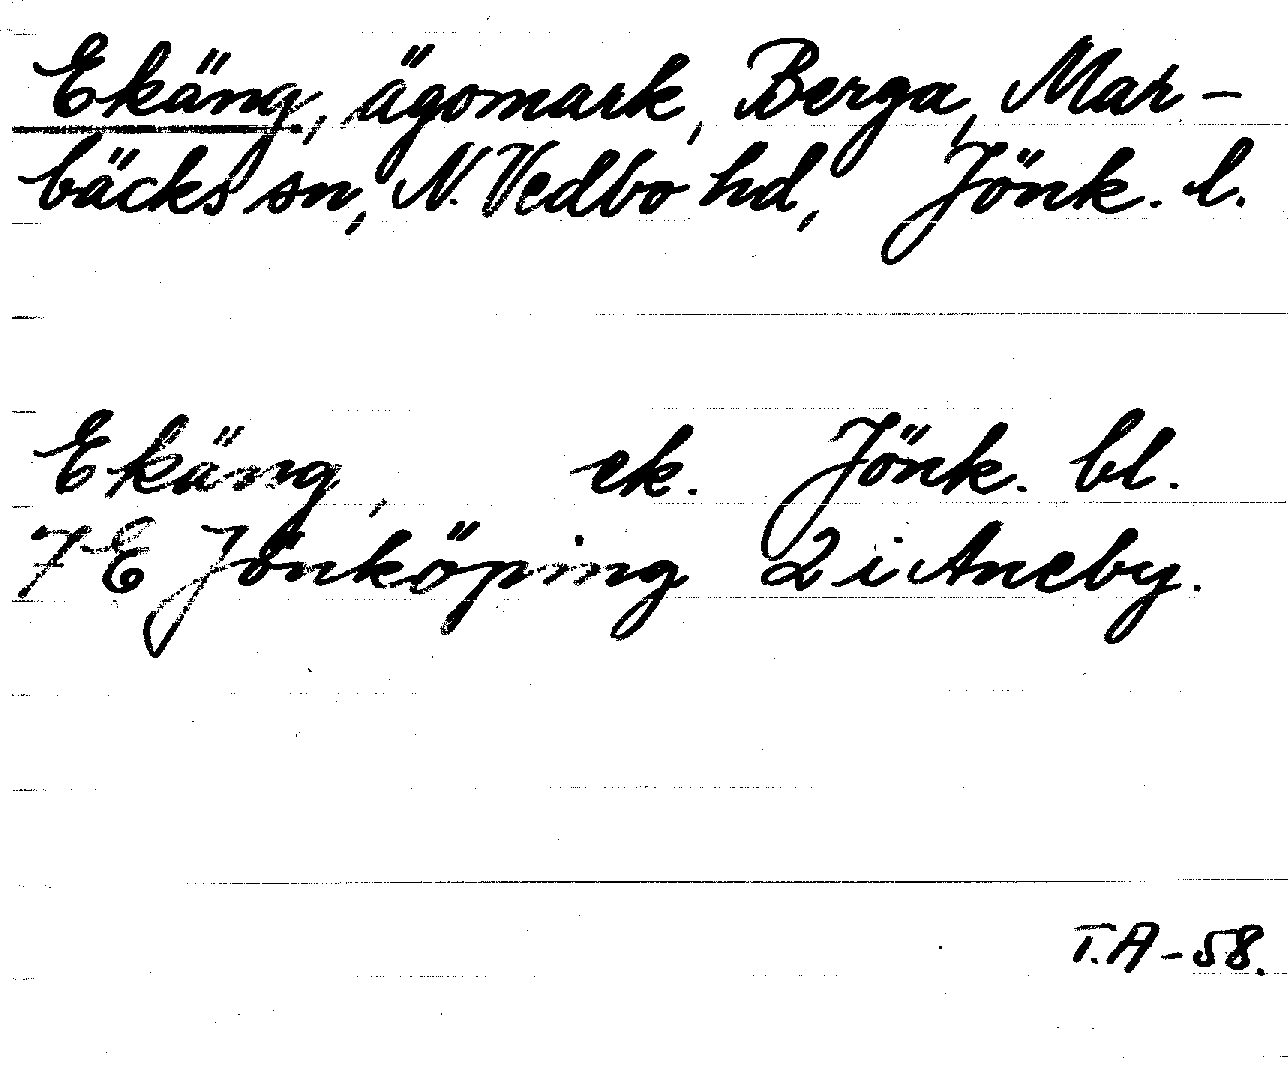 Ekäng, ägomark, Berga, Mar-
bäcks sn, N. Vedbo hd, Jönk. l.
Ekäng, ek. Jönk. bl.
7 E Jönköping 2 i Aneby.
T.A-58.